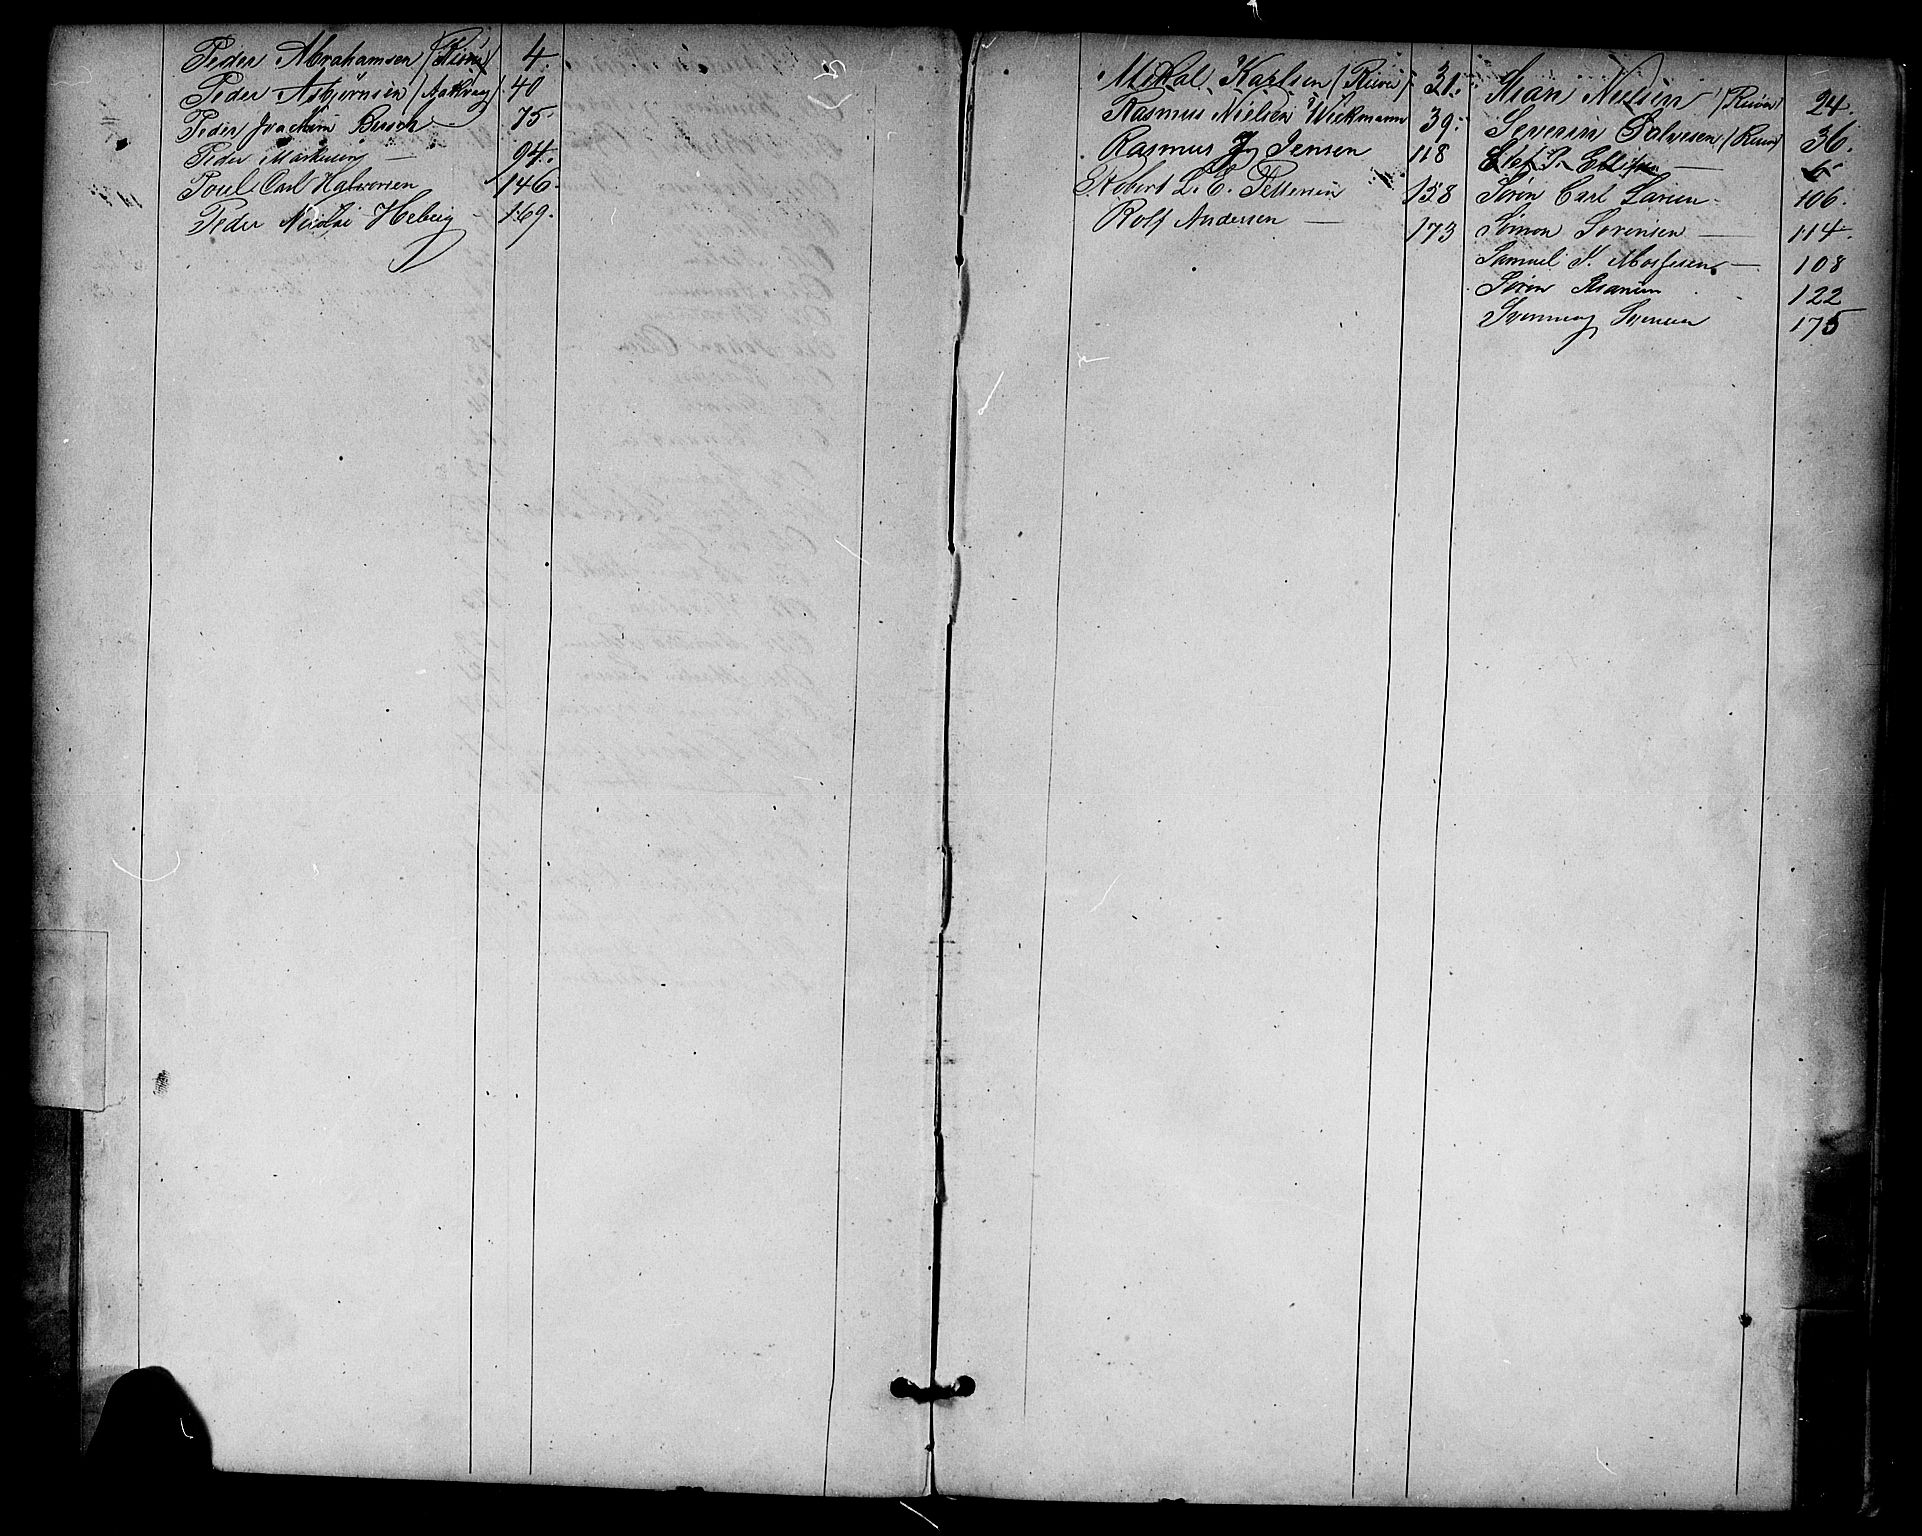 Peder Abrahamsen (Risør) 4.
Peder Asbjørnsen (Aakvaag) 40
Peder Joachim Busch 75
Peder Markusen 94.
Poul Carl Halvorsen 146.
Peder Nicolai Heberg 169.
Mikal Karlsen (Risør) 31.
Rasmus Nielsen Wickmann 39.
Rasmus J Jensen 118
Robert L. C. Pettersen 158
Rolf Andersen 173
Nielsen (Risør) 24.
Severin Salvesen (Risør) 36.
Søren Carl Larsen 106.
Simon Sørensen 114.
Samuel S. 108
Søren 122
Svenning Svensen 175